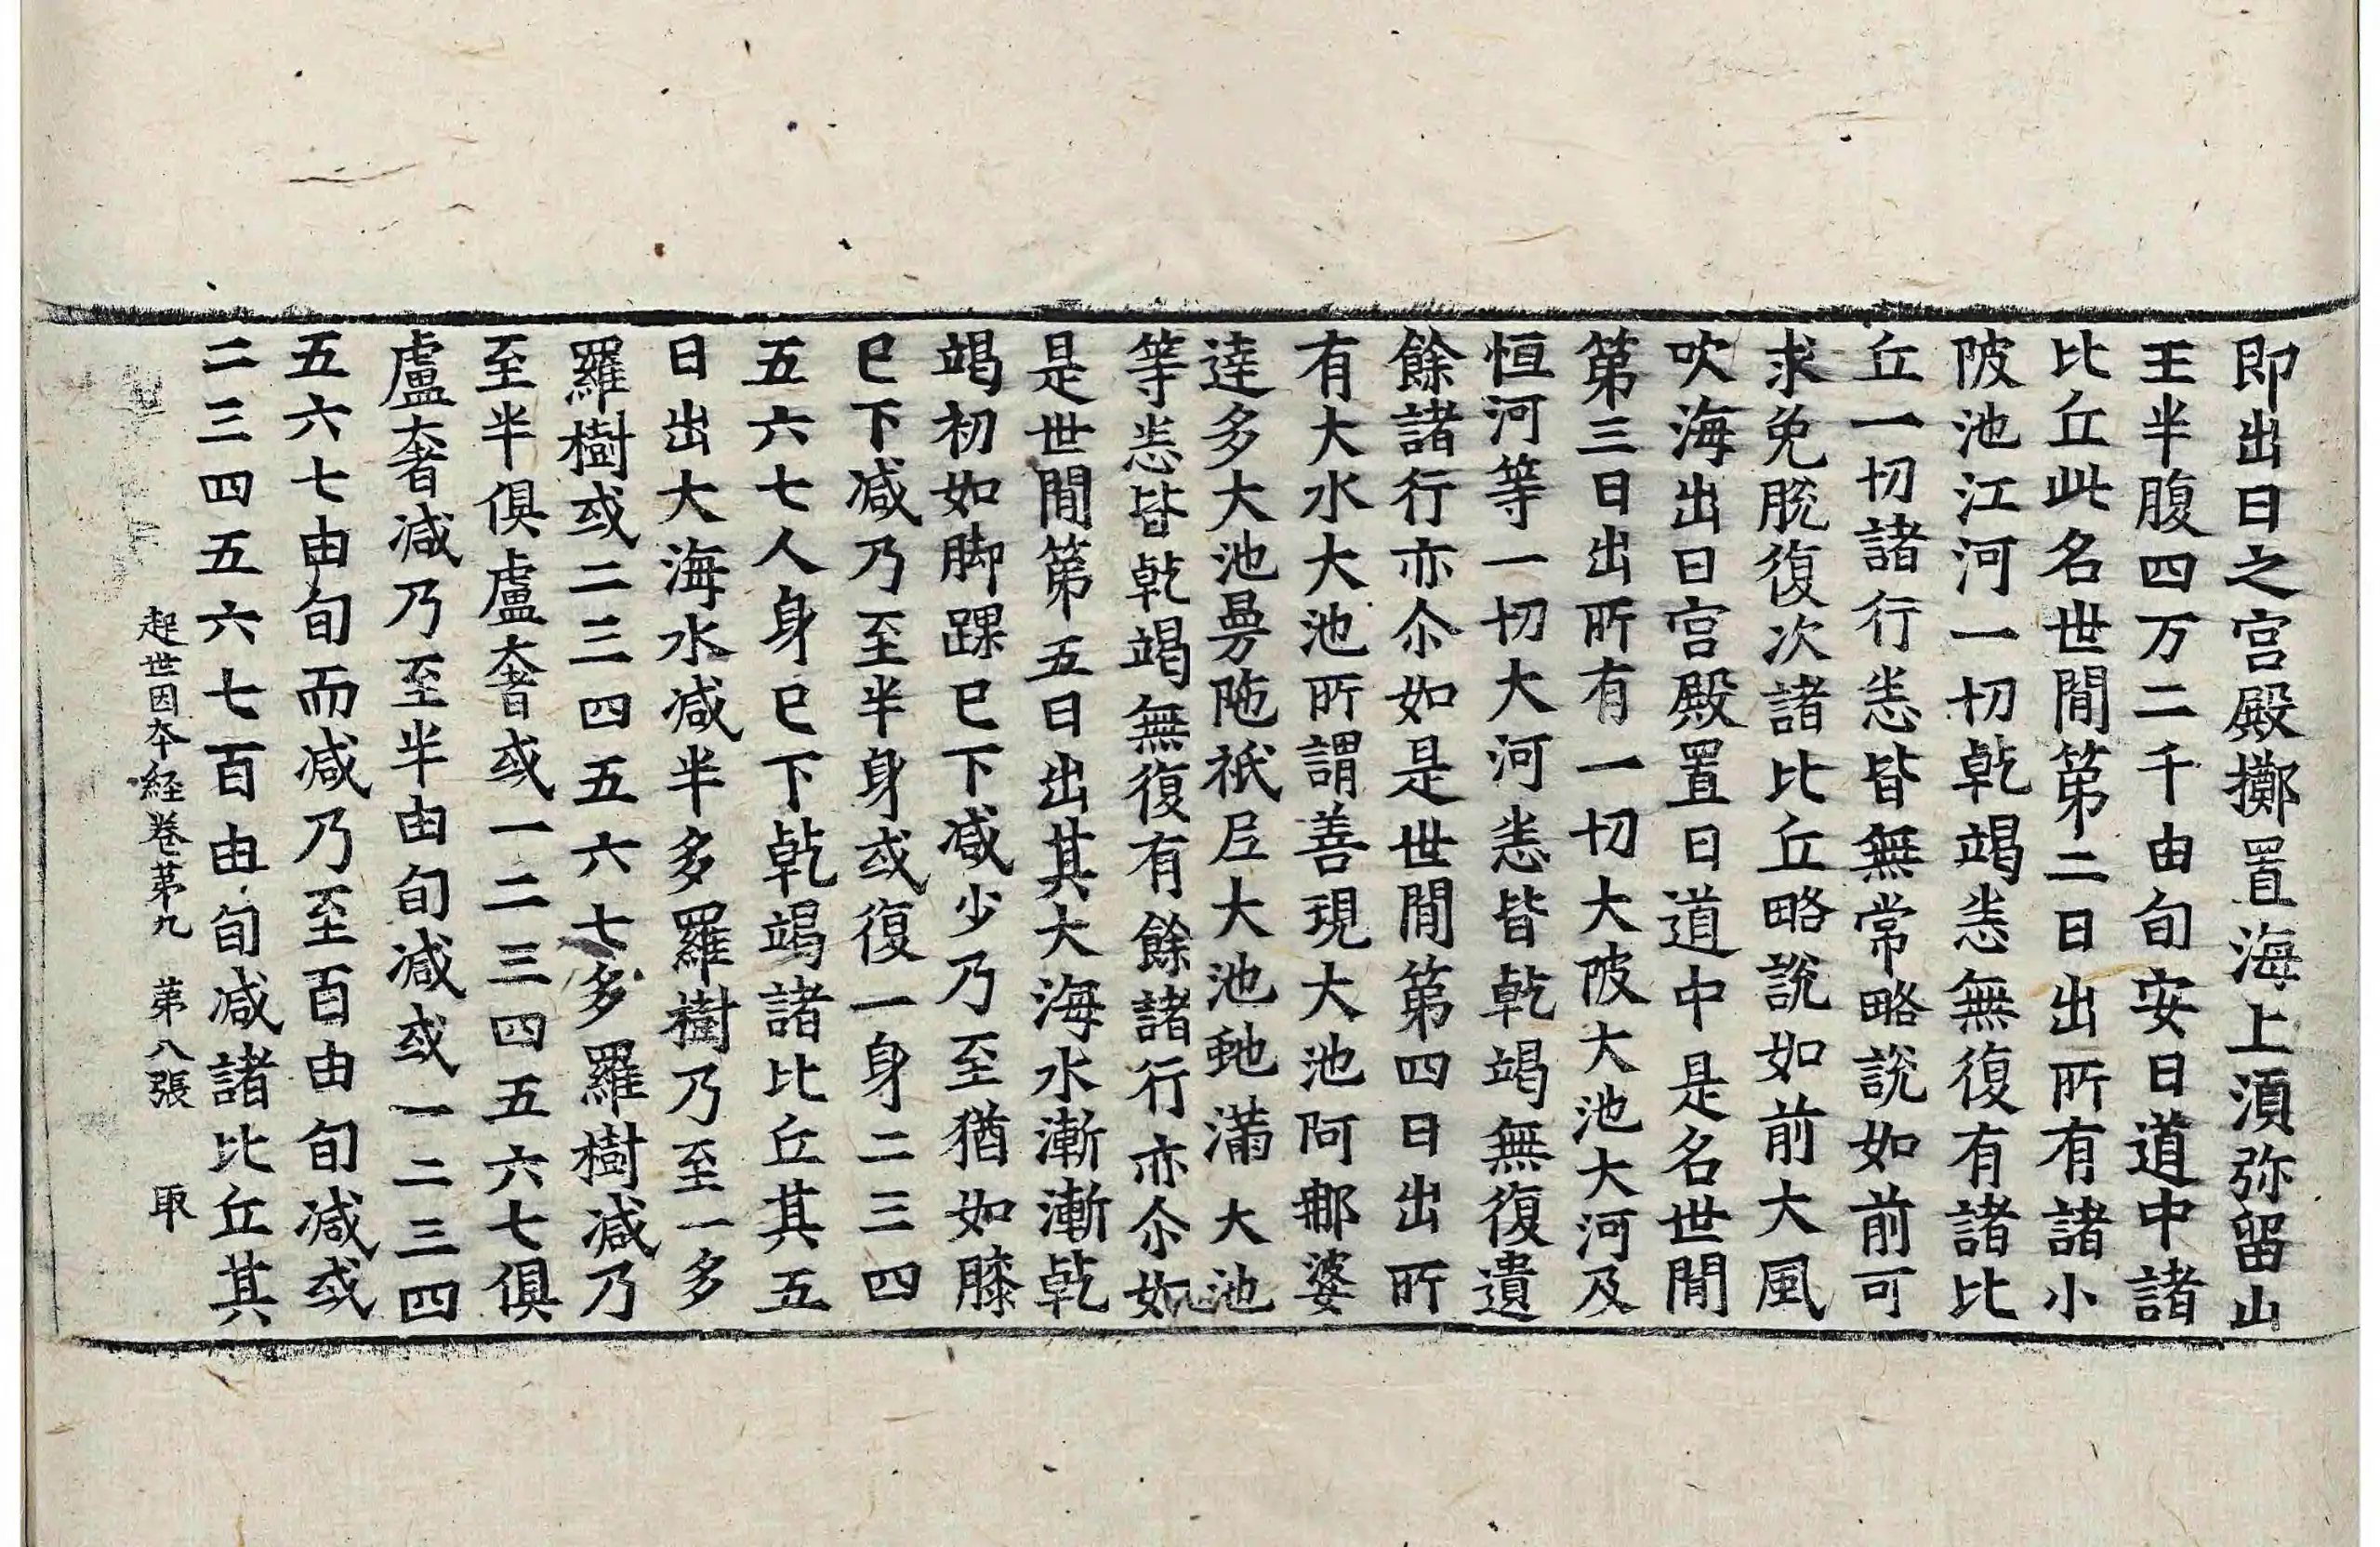 即出日之宮殿擲置海上湏弥留山
王半腹四万二千由旬安日道中諸
比丘此名世間第二日出所有諸小
陂池江河一切乹竭悉無復有諸比
丘一切諸行悉皆無常略說如前可
求免脫復次諸比丘略說如前大風
吹海出日宮殿置日道中是名世間
第三日出所有一切大陂大池大河及
恒河等一切大河悉皆乹竭無復遺
餘諸行亦尒如是世間第四日出所
有大水大池所謂善現大池阿那婆
達多大池曼陁祇尼大池虵滿大池
等悉皆乹竭無復有餘諸行亦尒如
是世間第五日出其大海水漸漸乹
竭初如脚踝已下减少乃至猶如膝
已下减乃至半身或復一身二三四
五六七人身已下乹竭諸比丘其五
日出大海水减半多羅樹乃至一多
羅樹或二三四五六七多羅樹减乃
至半俱盧奢或一二三四五六七俱
盧奢减乃至半由旬减或一二三四
五六七由旬而减乃至百由旬减或
二三四五六七百由旬减諸比丘其
起世因本経卷苐九 苐八張 取